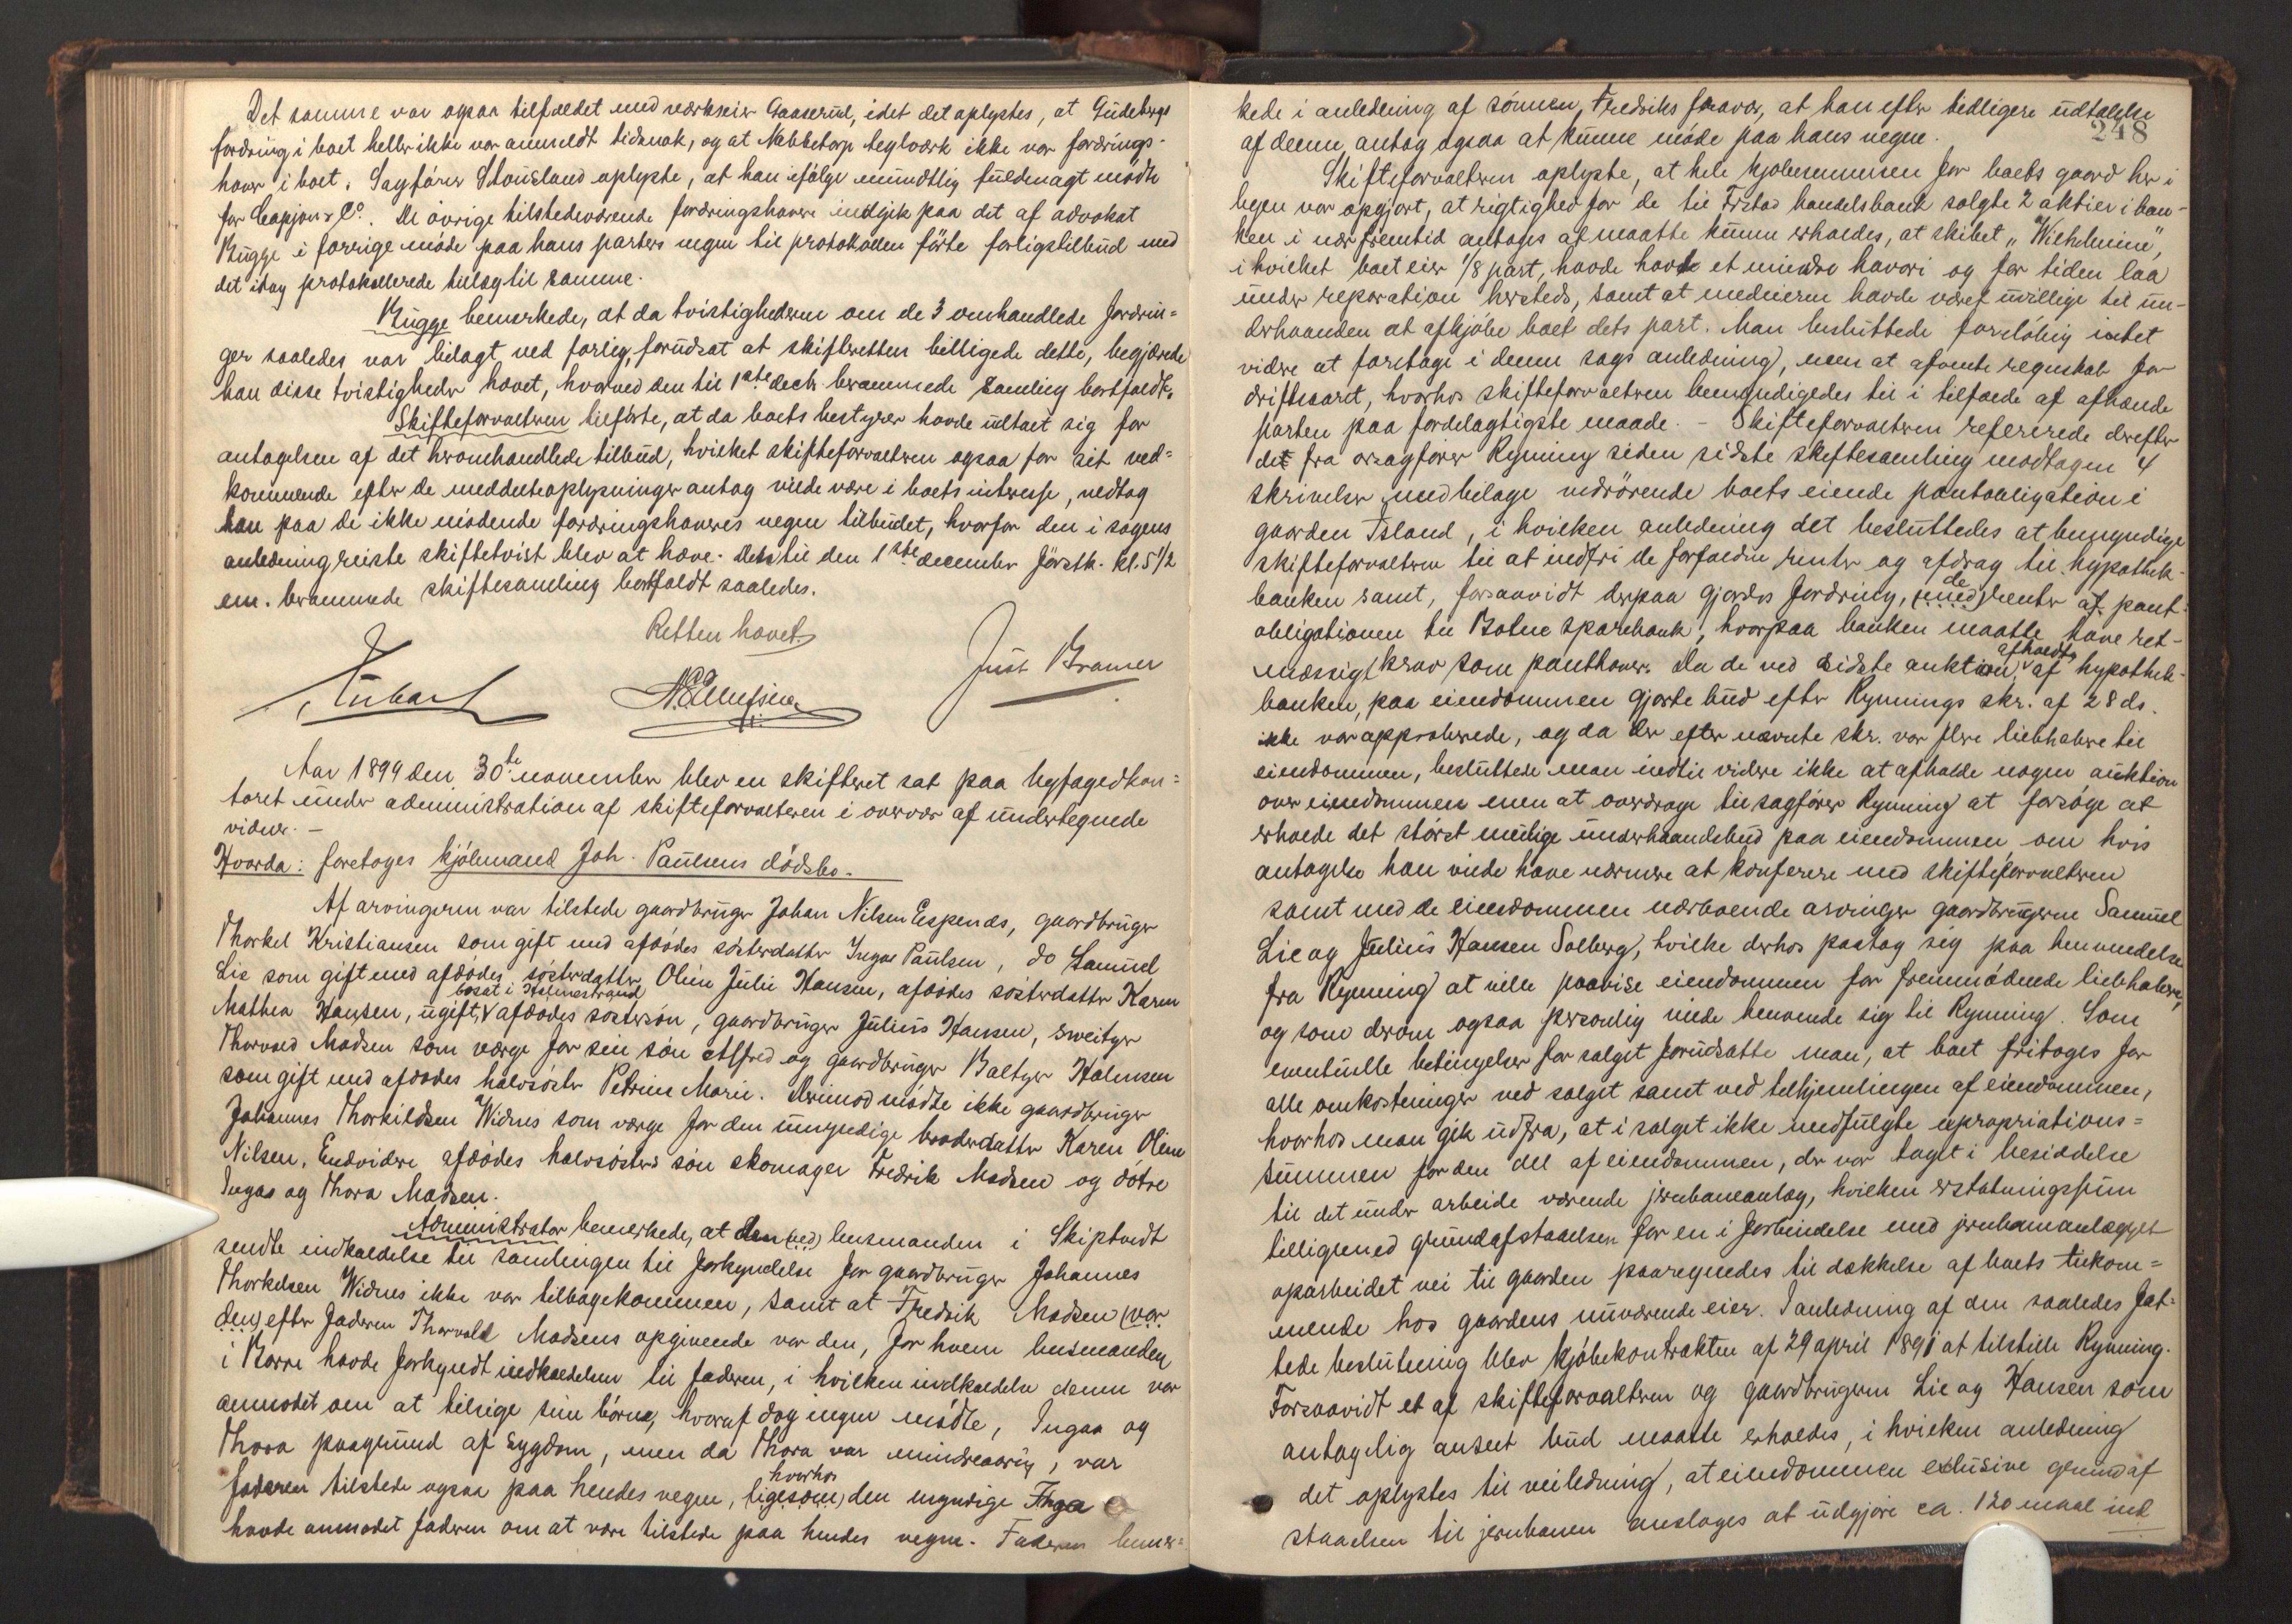 Det samme var ogsaa tilfældet med værkseier Gaaserud, idet det oplystes, at Gudebergs
fordring i boet heller ikke var anmeldt tidsnok, og at Nabbetorp teglværk ikke var fordrings-
haver i boet. Sagfører Stousland oplyste, at han ifølge mundtlig fuldmagt mødte
for Capjon & Co. De øvrige tilstedeværende fordringshavere indgik paa det af advokat
Bugge i forrige møde paa hans parters vegne til protokollen førte forligstilbud med
det idag protokollerede tillæg til samme.
Bugge bemærkede, at da tvistighederne om de 3 omhandlede fordrin=
ger saaledes var bilagt ved forlig, forudsat at skifteretten billigede dette, begjærede
han disse tvistigheder hævet, hvorved den til 1ste decbr. berammede samling bortfaldt.
Skifteforvalteren tilførte, at da boets bestyrer havde udtalt sig for
antagelsen af det heromhandlede tilbud, hvilket skifteforvalteren ogsaa for sit ved=
kommende efter de meddelte oplysninger antog vilde være i boets interesse, vedtog
han paa de ikke mødende fordringshaveres vegne tilbudet, hvorfor den i sagens
anledning reiste skiftetvist blev at hæve. Den til den 1ste december førstk. kl. 5 1/2
em. berammede skiftesamling bortfaldt saaledes.
Retten hævet.
Just Bramer
Aar 1899 den 30te november blev en skifteret sat paa byfogedkon=
toret under administration af skifteforvalteren i overvær af undertegnede
vidner. -
Hvorda: foretoges kjøbmand Joh. Paulsens dødsbo.
Af arvingerne var tilstede gaardbruger Johan Nilsen Espenæs, gaardbruger
Thorkel Kristiansen som gift med afdødes søsterdatter Ingas Paulsen, do Samuel
Lie som gift med afdødes søsterdatter Oline Julie Hansen, afdødes søsterdatter Karen
bosat i Holmestrand
Mathea Hansen, ugift, afdødes søstersøn, gaardbruger Julius Hansen, sveitser
Thorvald Madsen som værge for sin søn Alfred og gaardbruger Baltzer Halmsen
som gift med afdødes halvsøster Petrine Marie. Derimod mødte ikke gaardbruger
Johannes Thorkildsen Widnes som værge for den umyndige broderdatter Karen Oline
Nilsen. Endvidere afdødes halvsøsters søn skomager Fredrik Madsen og døtre
Ingas og Thora Madsen.
Administrator bemærkede, at den (ved) lensmanden i Skiptvedt
sendte indkaldelse til samlingen til forkyndelse for gaardbruger Johannes
Thorkelsen Widnes ikke var tilbagekommen, samt at Fredrik Madsen (var
den) efter faderen Thorvald Madsens opgivende var den, for hvem lensmanden
i Borre havde forkyndt indkaldelsen til faderen, i hvilken indkaldelse denne var
anmodet om at tilsige sine børn, hvoraf dog ingen mødte, Ingaa og
Thora paagrund af sygdom, men da Thora var mindreaarig, var
hvorhos
faderen tilstede ogsaa paa hendes vegne, (ligesom) den myndige Inga
havde anmodet faderen om at være tilstede paa hendes vegne. Faderen bemær=
248
kede i anledning af sønnen, Fredriks fravær, at han efter tidligere udtalelse
af denne antog ogsaa at kunne møde paa hans vegne.
Skifteforvalteren oplyste, at hele kjøbesummen for boets gaard her i
byen var opgjort, at rigtighed for de til Frstad handelsbank solgte 2 aktier i ban-
ken i nær fremtid antages at maatte kunne erholdes, at skibet "Wilhelmine",
i hvilket boet eier 1/8 part, havde havt et mindre havari og for tiden laa
under reparation hersteds, samt at medeierne havde været uvillige til un-
derhaanden at afkjøbe boet dets part. Man besluttede foreløbig intet
videre at foretage i denne sags anledning, men at afvente regnskab for
driftsaaret, hvorhos skifteforvalteren bemyndigedes til i tilfælde at afhænde
parten paa fordelagtigste maade. - Skifteforvalteren refererede derefter
det fra orsagfører Rynning siden sidste skiftesamling modtagen 4
skrivelser med bilage vedrørende boets eiende pantobligation i
gaarden Island, i hvilken anledning det besluttedes at bemyndige
skifteforvalteren til at indfri de forfaldne renter og afdrag til hypothek-
de
banken samt, forsaavidt derpaa gjordes fordring, (med) renter af pant-
obligationen til Botne sparebank, hvorpaa banken maatte have ret-
afholdte
mæssigt krav som panthaver. Da de ved sidste auktion, af hypothek-
banken, paa eiendommen gjorte bud efter Rynnings skr. af 28 ds.
ikke var approberede, og da der efter nævnte skr. var flere liebhabere til
eiendommen, besluttede man indtil videre ikke at afholde nogen auktion
over eiendommen men at overdrage til sagfører Rynning at forsøge at
erholde det størst mulige underhaandsbud paa eiendommen om hvis
antagelse han vilde have nærmere at konferere med skifteforvalteren
samt med de eiendommen nærboende arvinger gaardbrugerne Samuel
Lie og Julius Hansen Solberg, hvilke derhos paatog sig paa henvendelse
fra Rynning at ville paavise eiendommen for fremmødende liebhabere,
og som derom ogsaa personlig vilde henvende sig til Rynning. Som
eventuelle betingelser for salget forudsatte man, at boet fritages for
alle omkostninger ved salget samt ved tilhjemlingen af eiendommen,
hvorhos man gik udfra, at i salget ikke medfulgte expropriations=
summen for den del af eiendommen, der var taget i besiddelse
til det under arbeide værende jernbaneanlæg, hvilken erstatningssum
tilligemed grundafstaaelsen for en i forbindelse med jernbaneanlægget
oparbeidet vei til gaarden paaregnedes til dækkelse af boets tilkom=
mende hos gaardens nuværende eier. I anledning af den saaledes fat=
tede beslutning blev kjøbekontrakten af 29 april 1891 at tilstille Rynning.
Forsaavidt et af skifteforvalteren og gaardbrugerne Lie og Hansen som
antagelig anseet bud maatte erholdes, i hvilken anledning
det oplystes til veiledning, at eiendommen exlusive grundaf
staaelsen til jernbanen ansloges at udgjøre ca. 120 maal ind